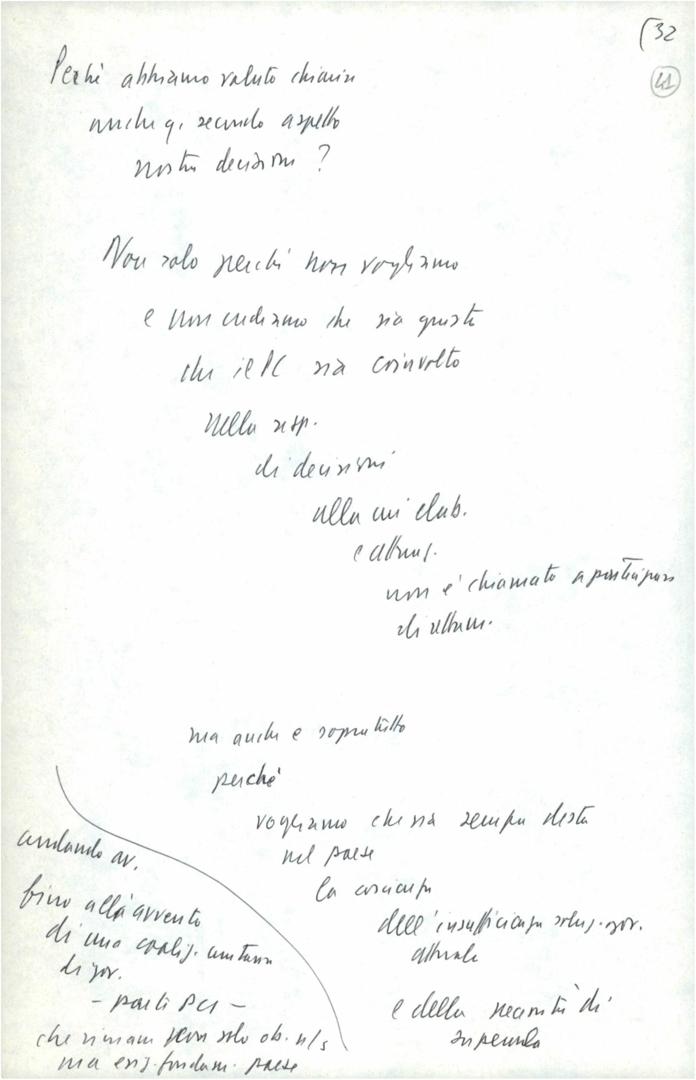 (32
41
Perché abbiamo voluto chiarire
anche q. secondo aspetto
nostra decisione?
Non solo perché non vogliamo
e non crediamo che sia giusto
che il PC sia coinvolto
nella resp.
di decisioni
alla cui elab.
e attuaz.
non è chiamato a partecipare
ma anche e soprattutto
perché
vogliamo che sia sempre desta
nel paese
la coscienza
dell'insufficienza soluz. gov.
attuale
e della necessità di
superarla
andando av.
fino all'avvento
di una coaliz. unitaria
di gov.
- parti PCI -
che rimane non solo ob. n/s
ma esig. fondam. paese